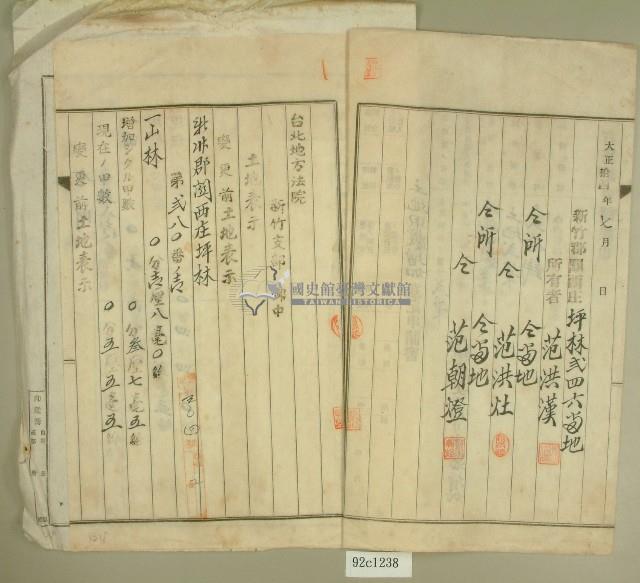 大正拾四年七月 日
新竹郡關西庄坪林弍四六番地
所有者 范洪漢
仝所 仝番地
仝 范洪灶
仝所 仝番地
仝 范朝澄
台北地方法院
新竹支部 御中
土地表示
變更前土地表示
新竹郡關西庄坪林
第弍八〇番ノ
一山林
〇分 厘八毫〇糸
增加シタル甲數
〇分叁厘七毫五糸
現在ノ甲數
〇分五厘五毫五糸
變更前土地表示
國史館臺灣文獻館
TAIWAN HISTORICA
92c1238